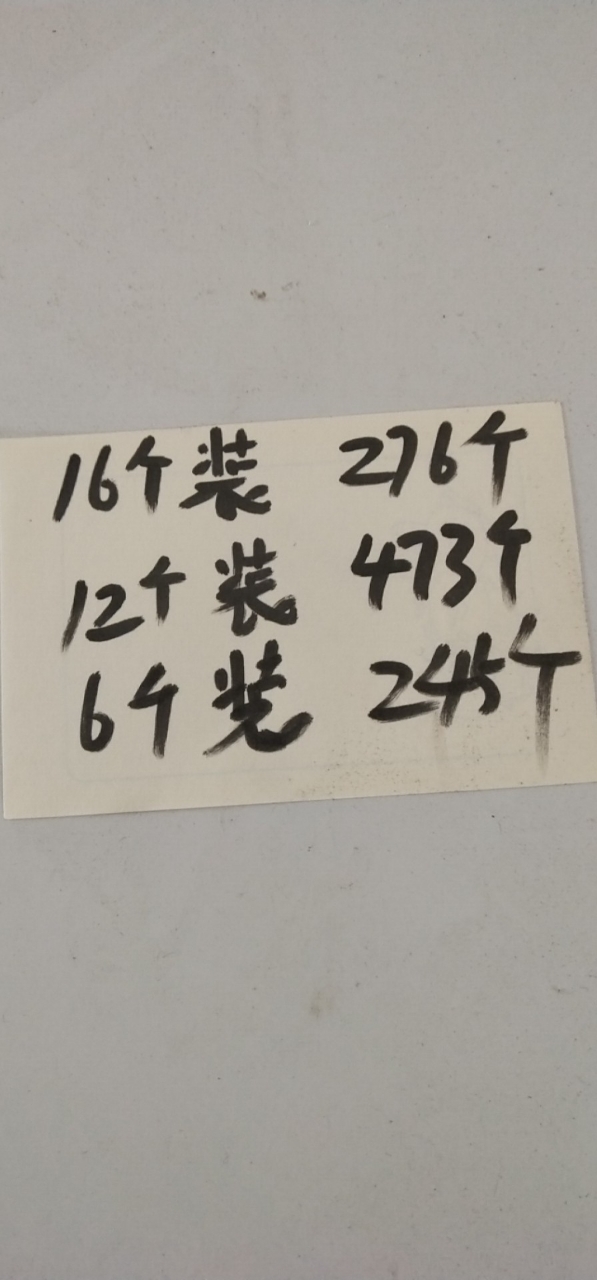 16个装 276个
12个装 473个
6个装 245个